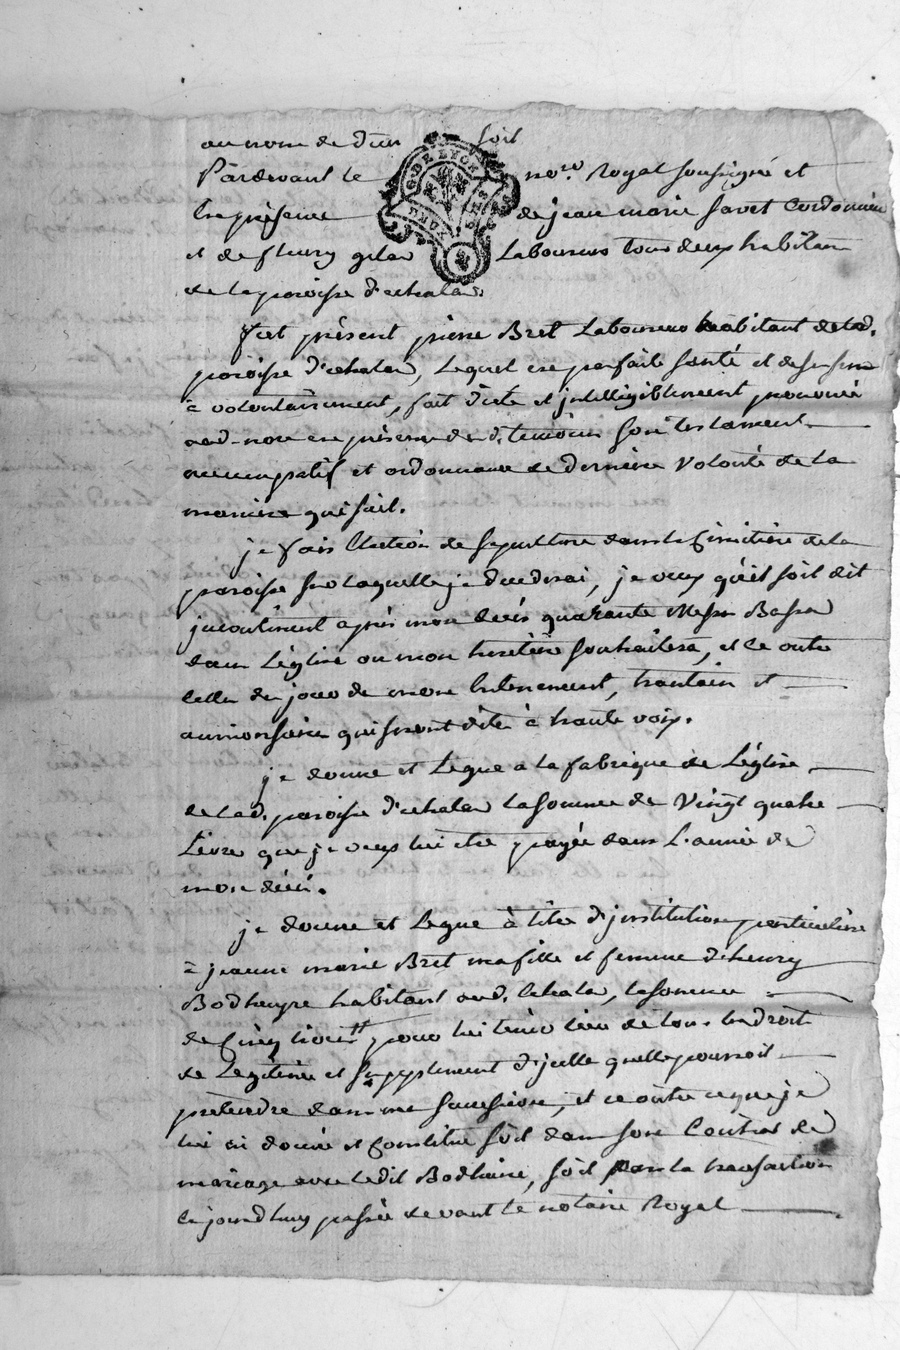 au nom de dieu soit
G. DE LYON
DEUX SOLS
Pardevant le no.re Royal soussigné et
en présence de jean marie favet Cordonnier
et de fleury gilar Laboureur tous deux habitan
de la paroisse d'echalas.
fut présent pierre Bret Laboureur habitant de lad.
paroisse d'echalas, Lequel en parfaite santé et de ses sens
à volontairement, fait dicté et jntelligiblement prononcé
aud. no.re en présence des d. temoins son testament
nuncupatif et ordonnance de derniere volonté de la
maniere qui suit.
je fais Election de sepulture dans le cimitiere de la
paroisse sur laquelle je decederai, je veux qu'il soit dit
jncontinent après mon decès quarante Messes Basses
dans L'église ou mon heritière souhaitera, et ce outre
celles du jour de mon enterrement, trantain et
anniversaire qui seront dites à haute voix.
je donne et Legue a la fabrique de L'église
de lad. paroisse d'echalas la somme de vingt quatre
Livres que je veux lui etre payée dans L'année de
mon décés.
je donne et Legue à titre d'jnstitution particulière
à jeanne marie Bret ma fille et femme d'henry
Bodheyre habitant aud. echalas, la somme
de cinq livres pour lui tenir lieu de tous les droits
de Legitime et supplement d'jcelle quelle pourroit
prétendre dans ma succession, et ce outre ce que je
lui ai donné et constitué soit dans son Contrat de
mariage avec ledit Bodhaire, soit par la transaction
ce jourdhuy passée devant le notaire Royal